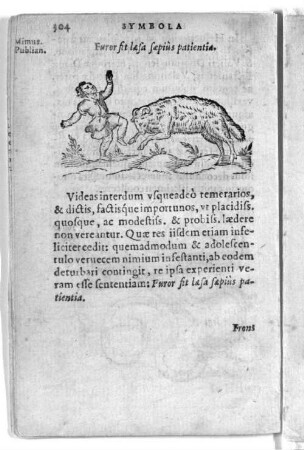 504 SYMBOLA
Mimus.
Publian.
Furor fit læsa sæpiùs patientia.
Videas interdum vsqueadeò temerarios,
& dictis, factisque importunos, vt placidiss.
quosque, ac modestiss. & probiss. lædere
non vereantur. Quæ res iisdem etiam infe-
liciter cedit: quemadmodum & adolescen-
tulo veruecem nimium infestanti, ab eodem
deturbari contingit, re ipsa experienti ve-
ram esse sententiam: Furor fit læsa sæpiùs pa-
tientia.
Frons